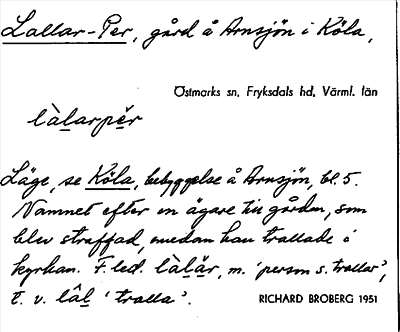 Lallar-Per, gård å Arnsjön i Köla,
Östmarks sn, Fryksdals hd, Värml. län
làlarpěr
Läge, se Köla, bebyggelse å Arnsjön, bl. 5.
Namnet efter en ägare till gården, som
blev straffad, medan han trallade i
kyrkan. F.led. làlär, m. 'person s. trallar',
t. v. lâl 'tralla'.
RICHARD BROBERG 1951